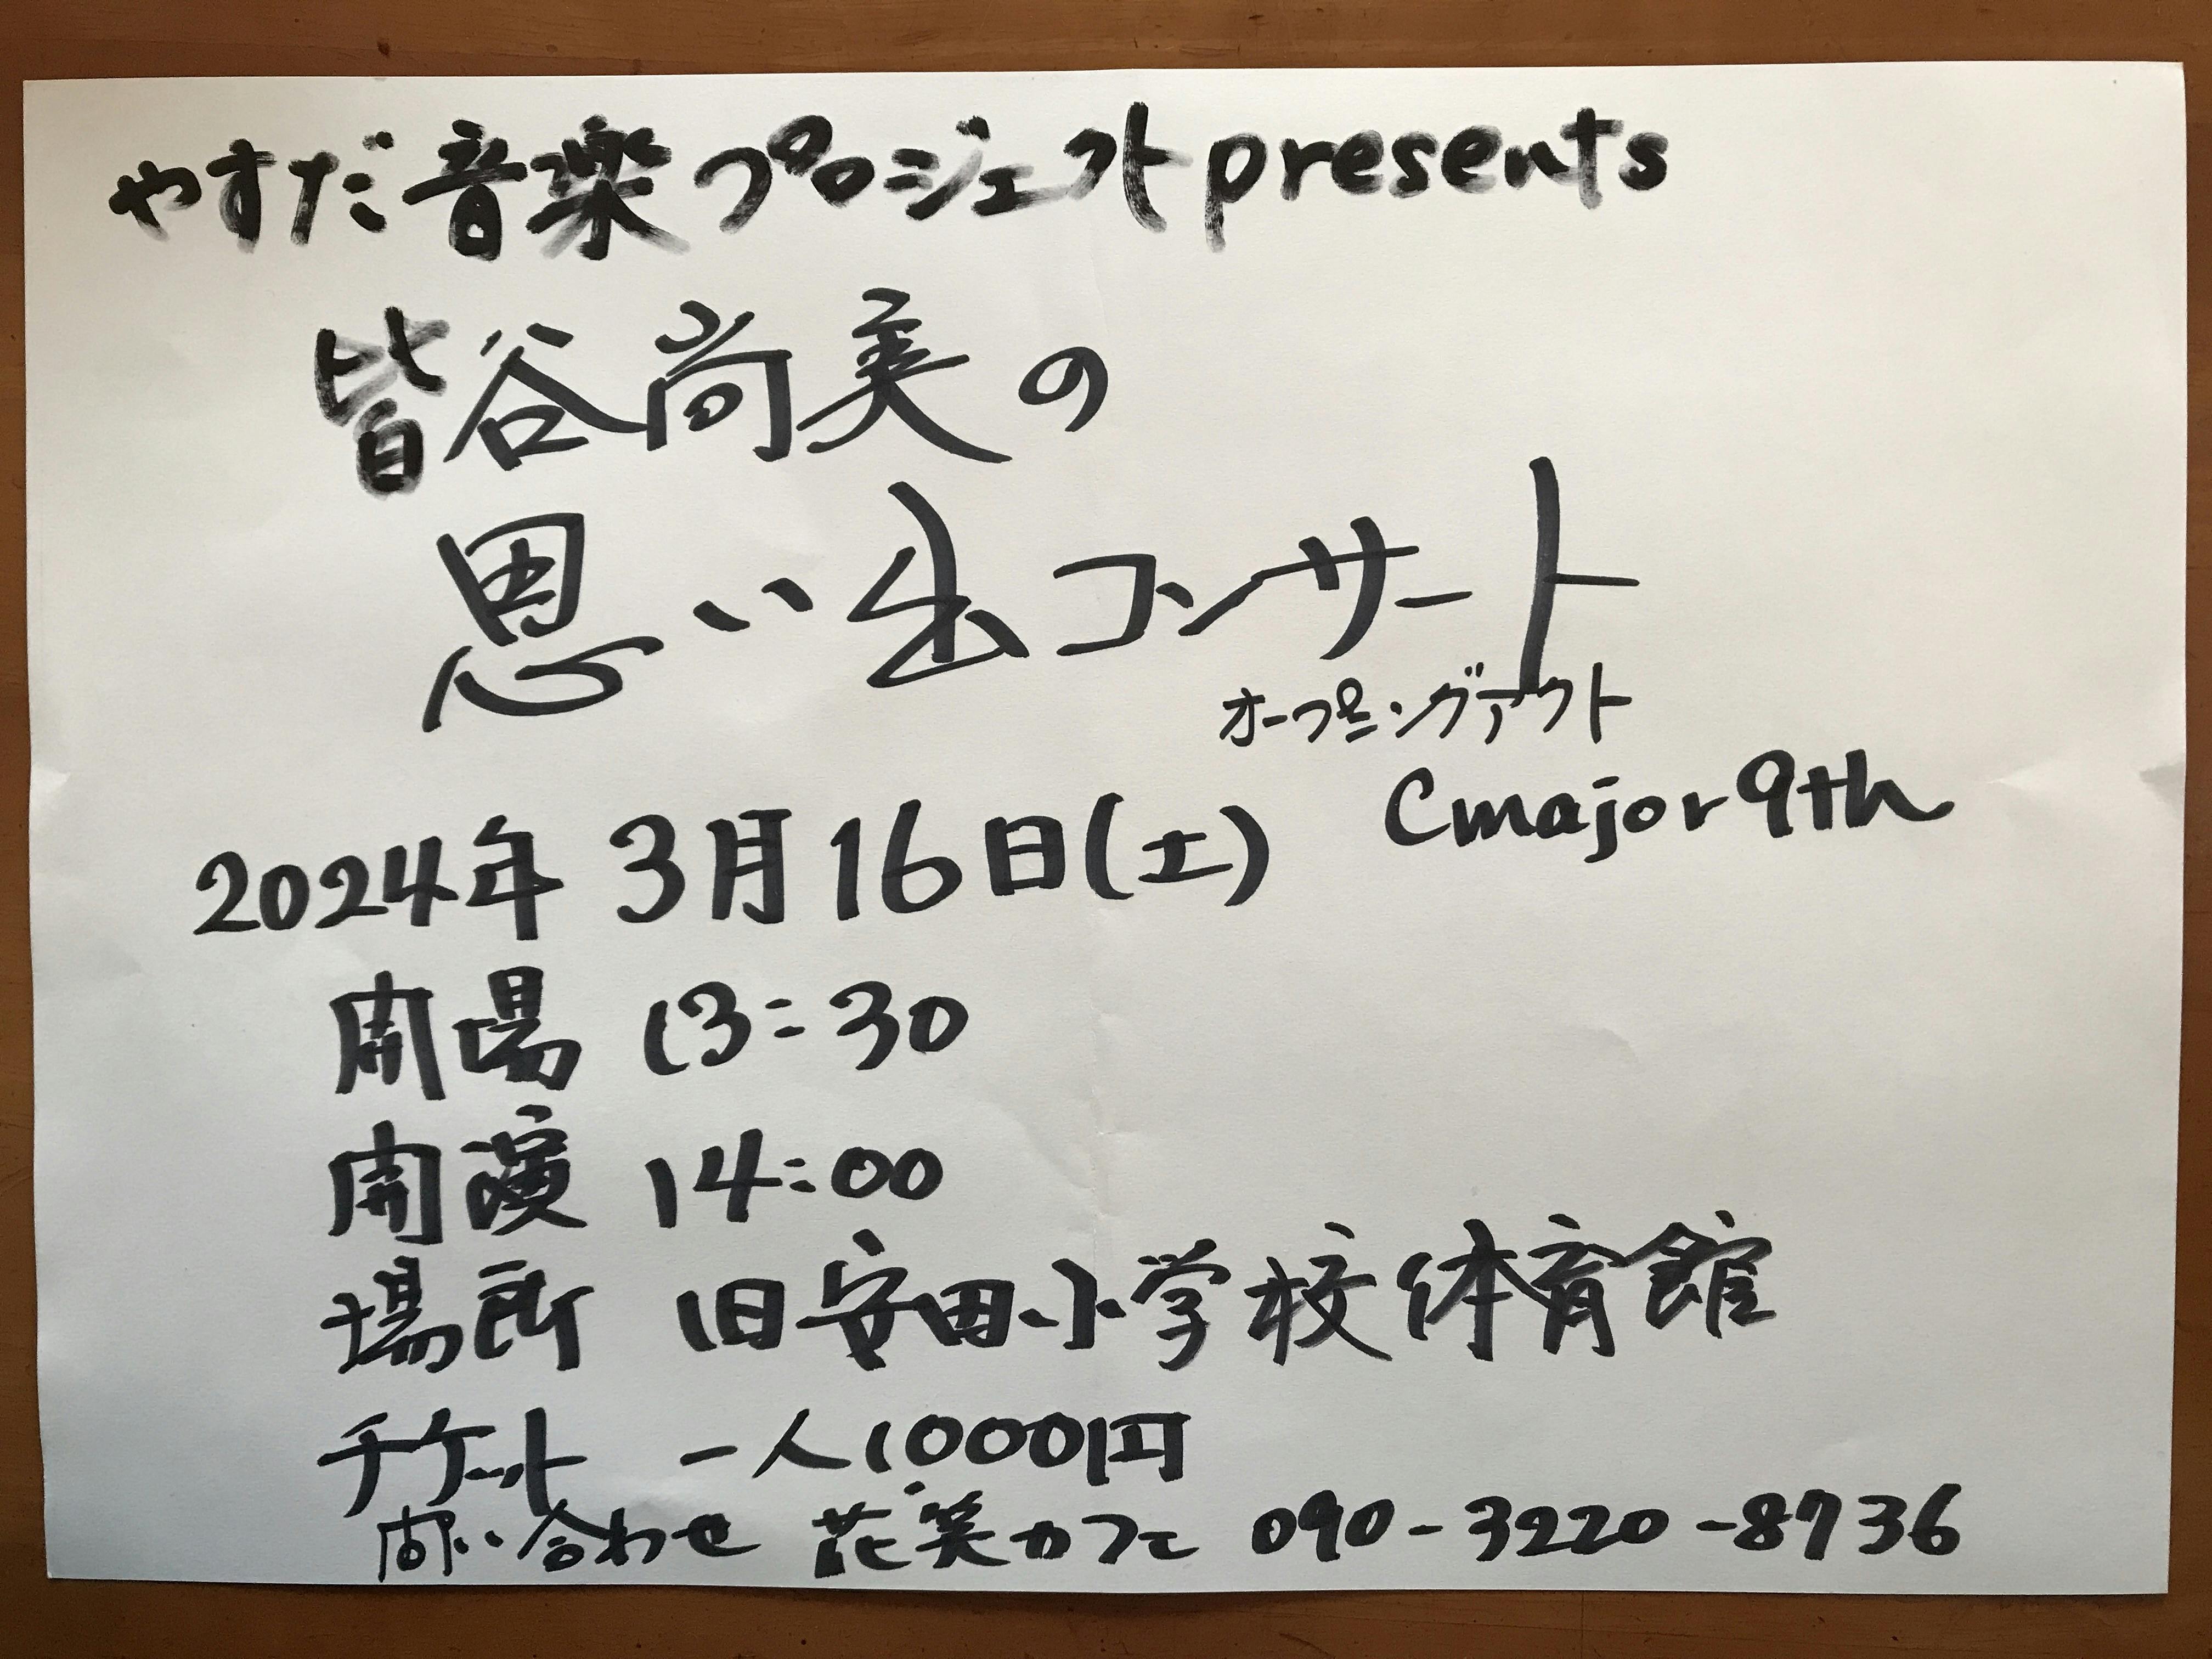 やすだ音楽プロジェクトpresents
皆谷尚美の
思い出コンサート
オープニングアクト
Cmajor9th
2024年 3月16日(土)
開場 13:30
開演 14:00
場所 旧安田小学校体育館
チケット 一人1000円
問い合わせ 花笑カフェ 090-3220-8736